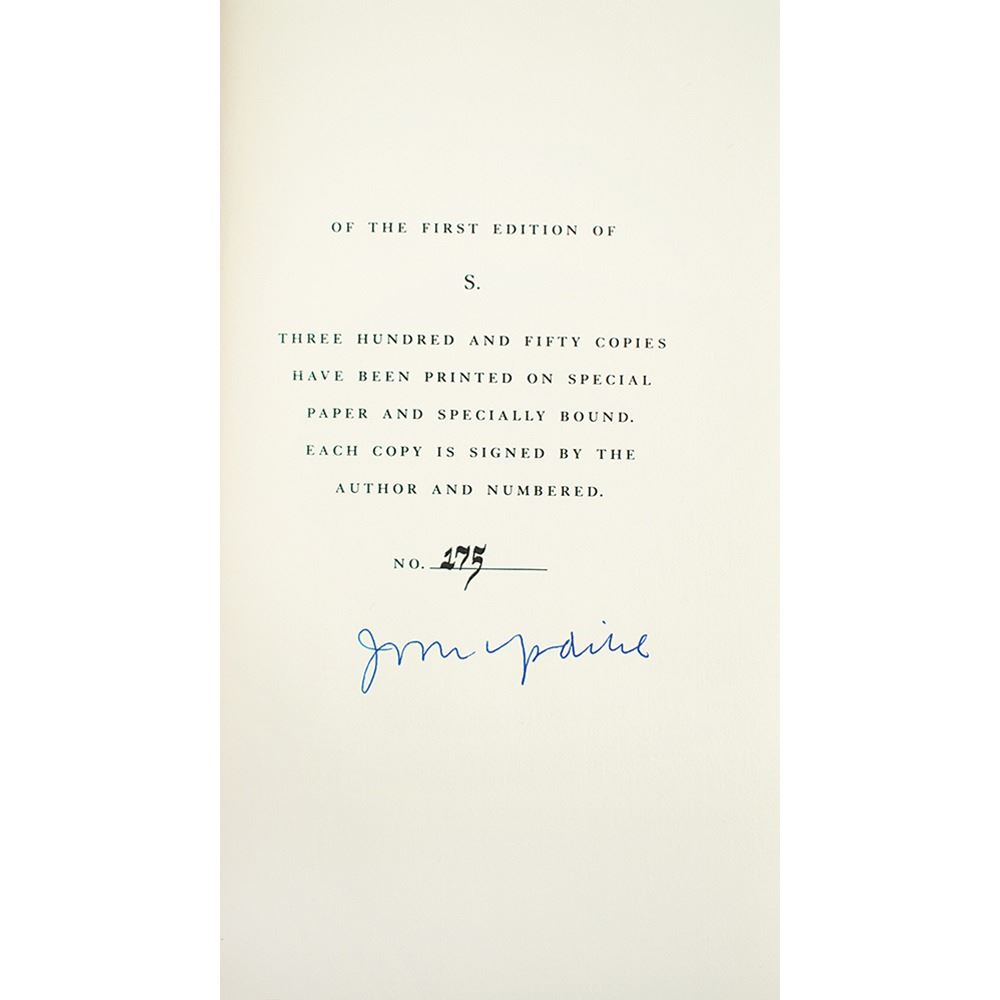 OF THE FIRST EDITION OF
S.
THREE HUNDRED AND FIFTY COPIES
HAVE BEEN PRINTED ON SPECIAL
PAPER AND SPECIALLY BOUND.
EACH COPY IS SIGNED BY THE
AUTHOR AND NUMBERED.
NO. 175
John Updike